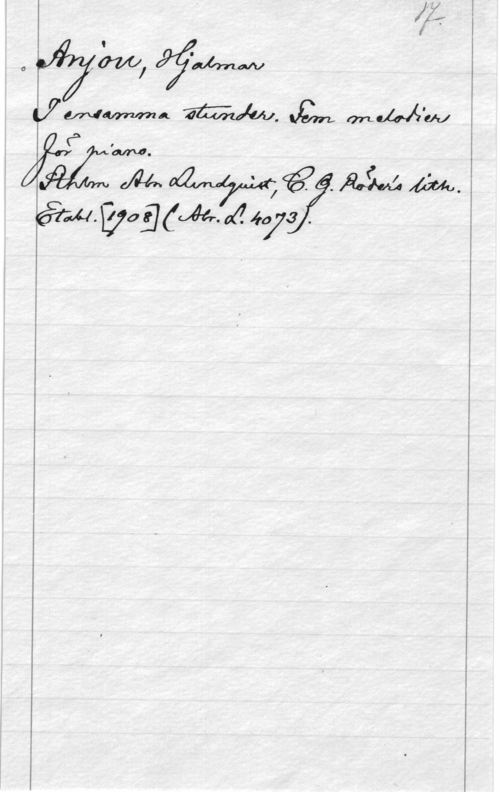 17.
Anjou, Hjalmar
I ensamma stunder. Fem melodier
för piano.
Sthlm Abr. Lundquist, C. G. Röder's lith.
Etabl. [1908] (Abr. L. 4073).